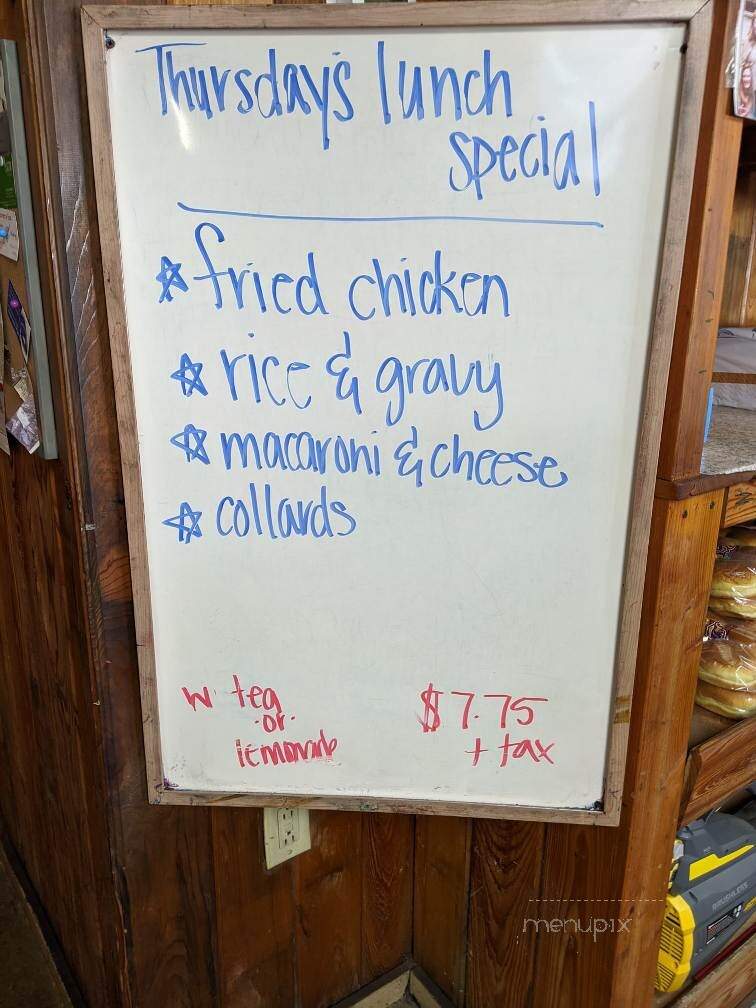 Thursday's lunch
special
☆ fried chicken
☆ rice & gravy
☆ macaroni & cheese
☆ collards
w tea
-or-
lemonade
$7.75
+ tax
BRUSHLESS
menupix